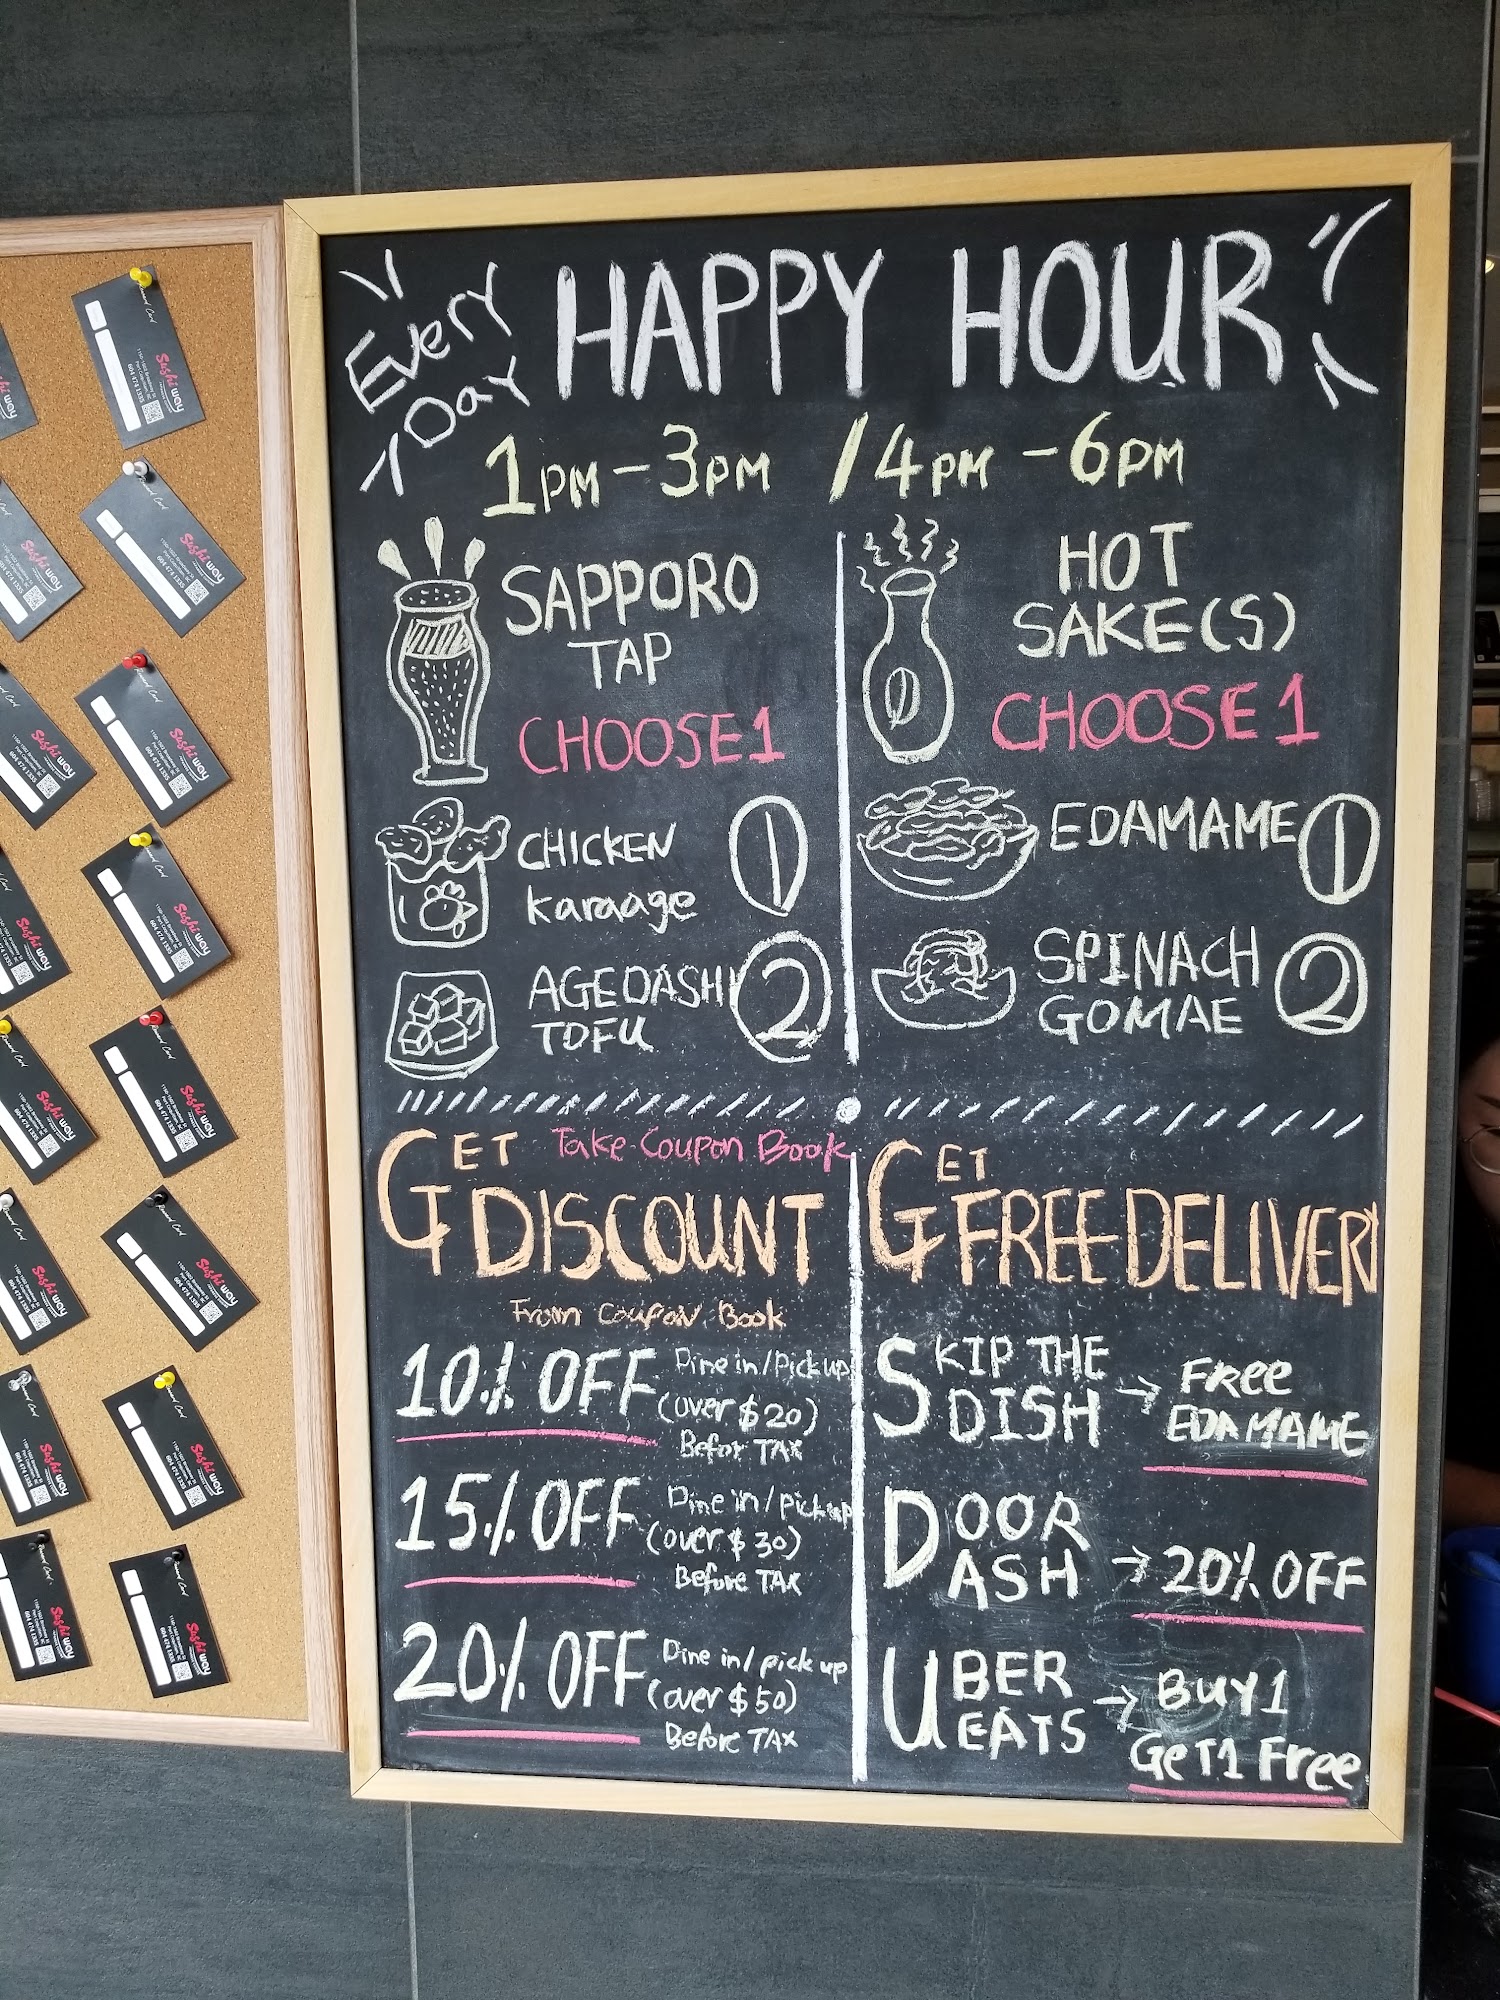 EVERY
DAY
HAPPY HOUR
1PM - 3PM / 4PM - 6PM
SAPPORO
TAP
CHOOSE 1
CHICKEN
Karaage
1
AGEDASHI
TOFU
2
HOT
SAKE(S)
CHOOSE 1
EDAMAME
1
SPINACH
GOMAE
2
GET Take Coupon Book
DISCOUNT
From Coupon Book
10% OFF Dine in/Pick up
(over $20)
Befor TAX
15% OFF Dine in/pick up
(over $30)
Before TAX
20% OFF Dine in/pick up
(over $50)
Before TAX
GET
FREE DELIVERY
SKIP THE
DISH → Free
EDAMAME
DOOR
DASH → 20% OFF
UBER
EATS → BUY 1
GeT 1 Free
Reward Card
Sushi way
604 474 1335